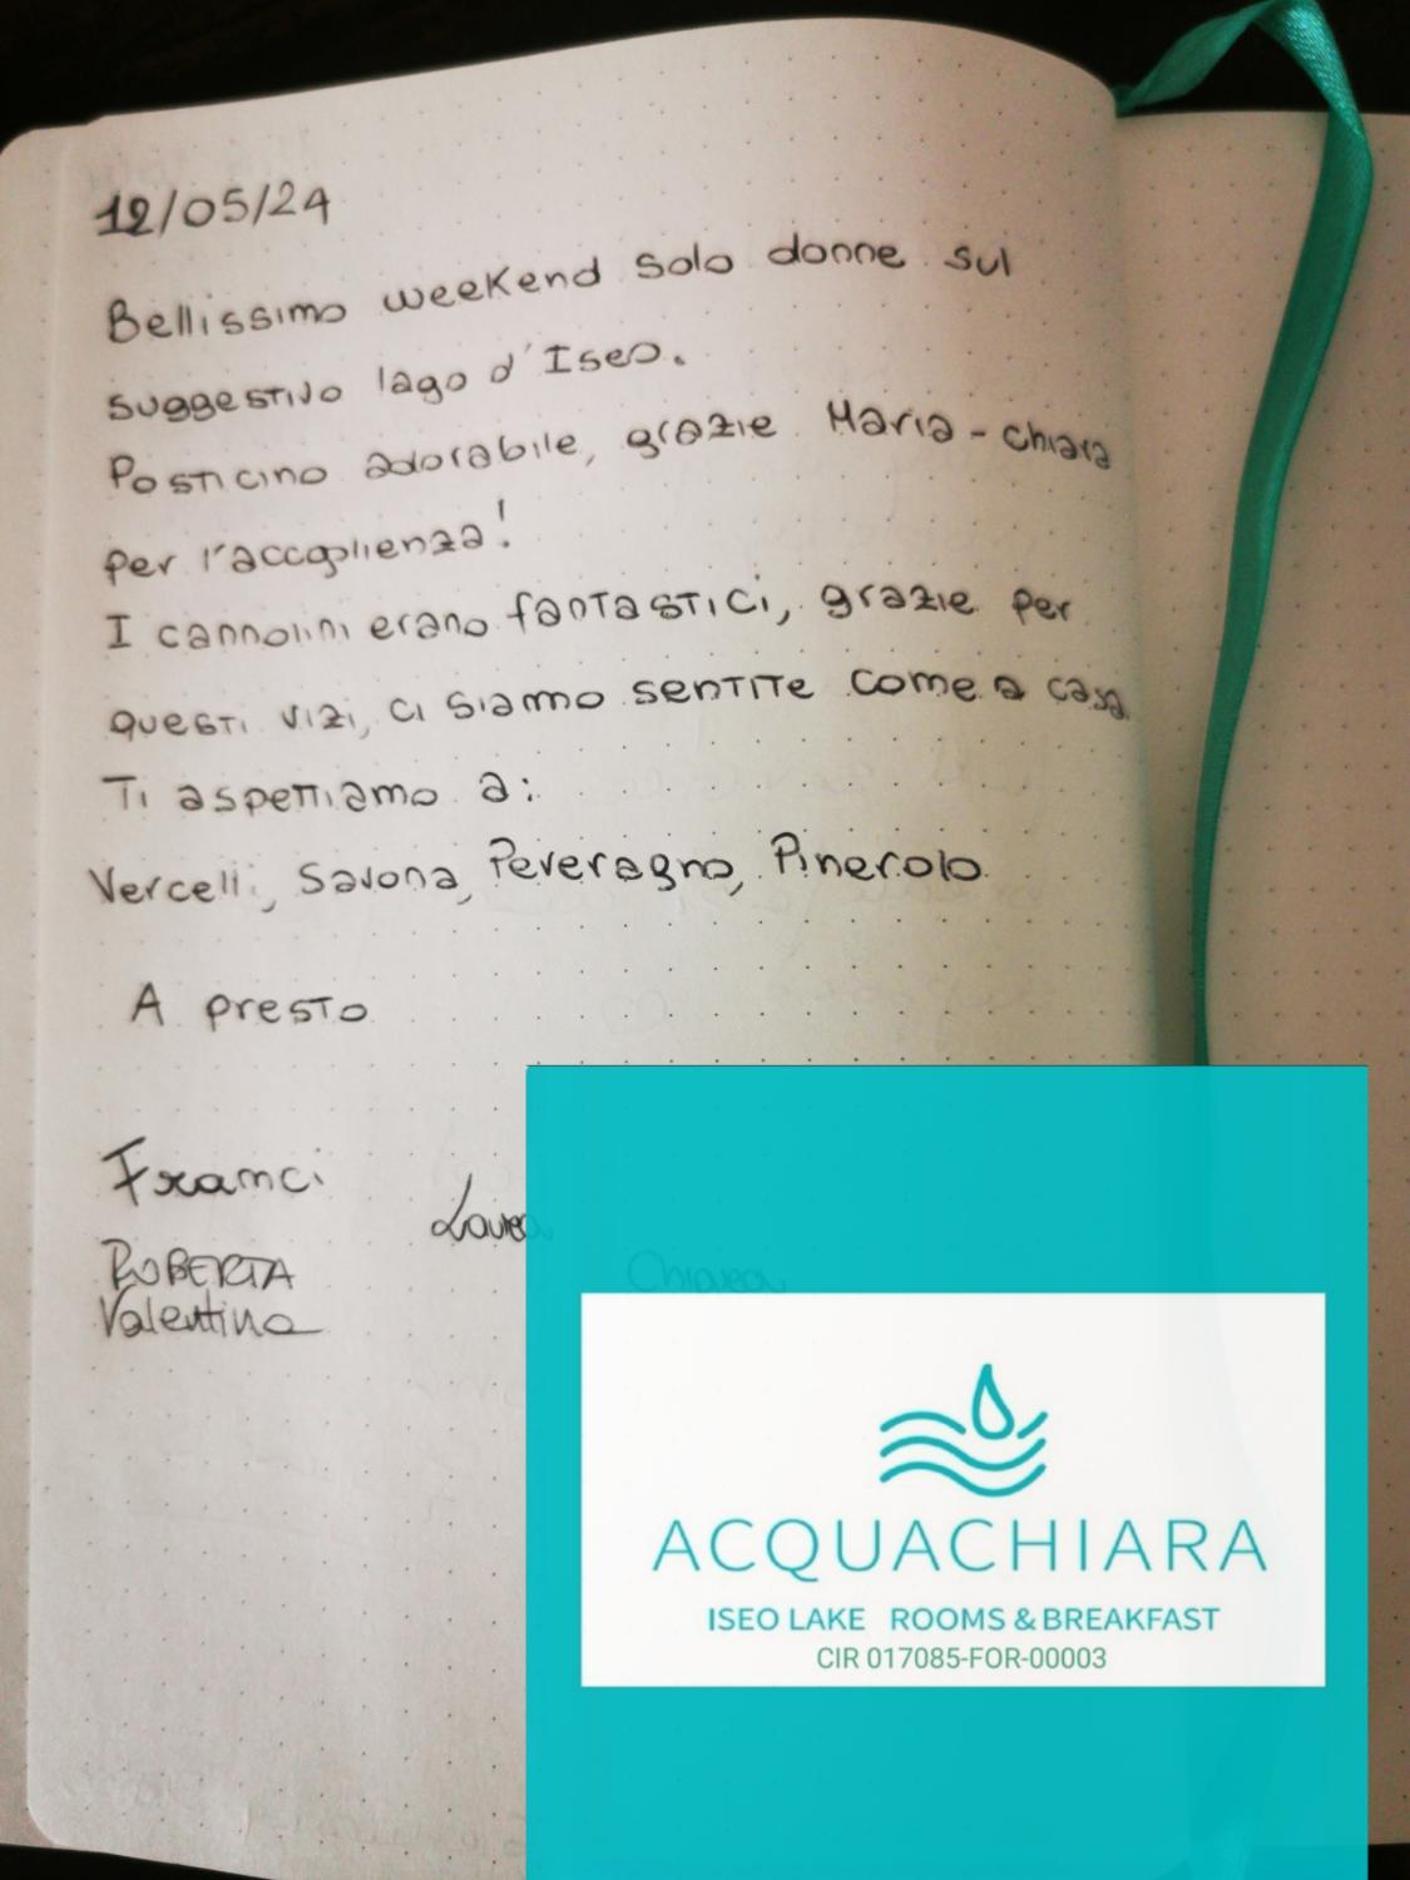 12/05/24
Bellissimo weekend solo donne sul
suggestivo lago d'Iseo.
Posticino adorabile, grazie Maria-Chiara
per l'accoglienza!
I cannolini erano fantastici, grazie per
questi vizi, ci siamo sentite come a casa
Ti aspettiamo a:
Vercelli, Savona, Peveragno, Pinerolo
A presto
Franci
Laura
Chiara
ROBERTA
Valentina
ACQUACHIARA
ISEO LAKE ROOMS & BREAKFAST
CIR 017085-FOR-00003